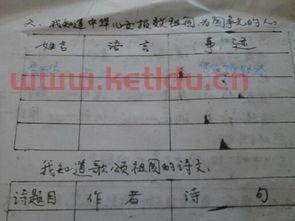 我知道中华儿女报效祖国,为国争光的人。
姓名 语言 事迹
www.ketldu.cn
我知道歌颂祖国的诗文。
诗题目 作者 诗句